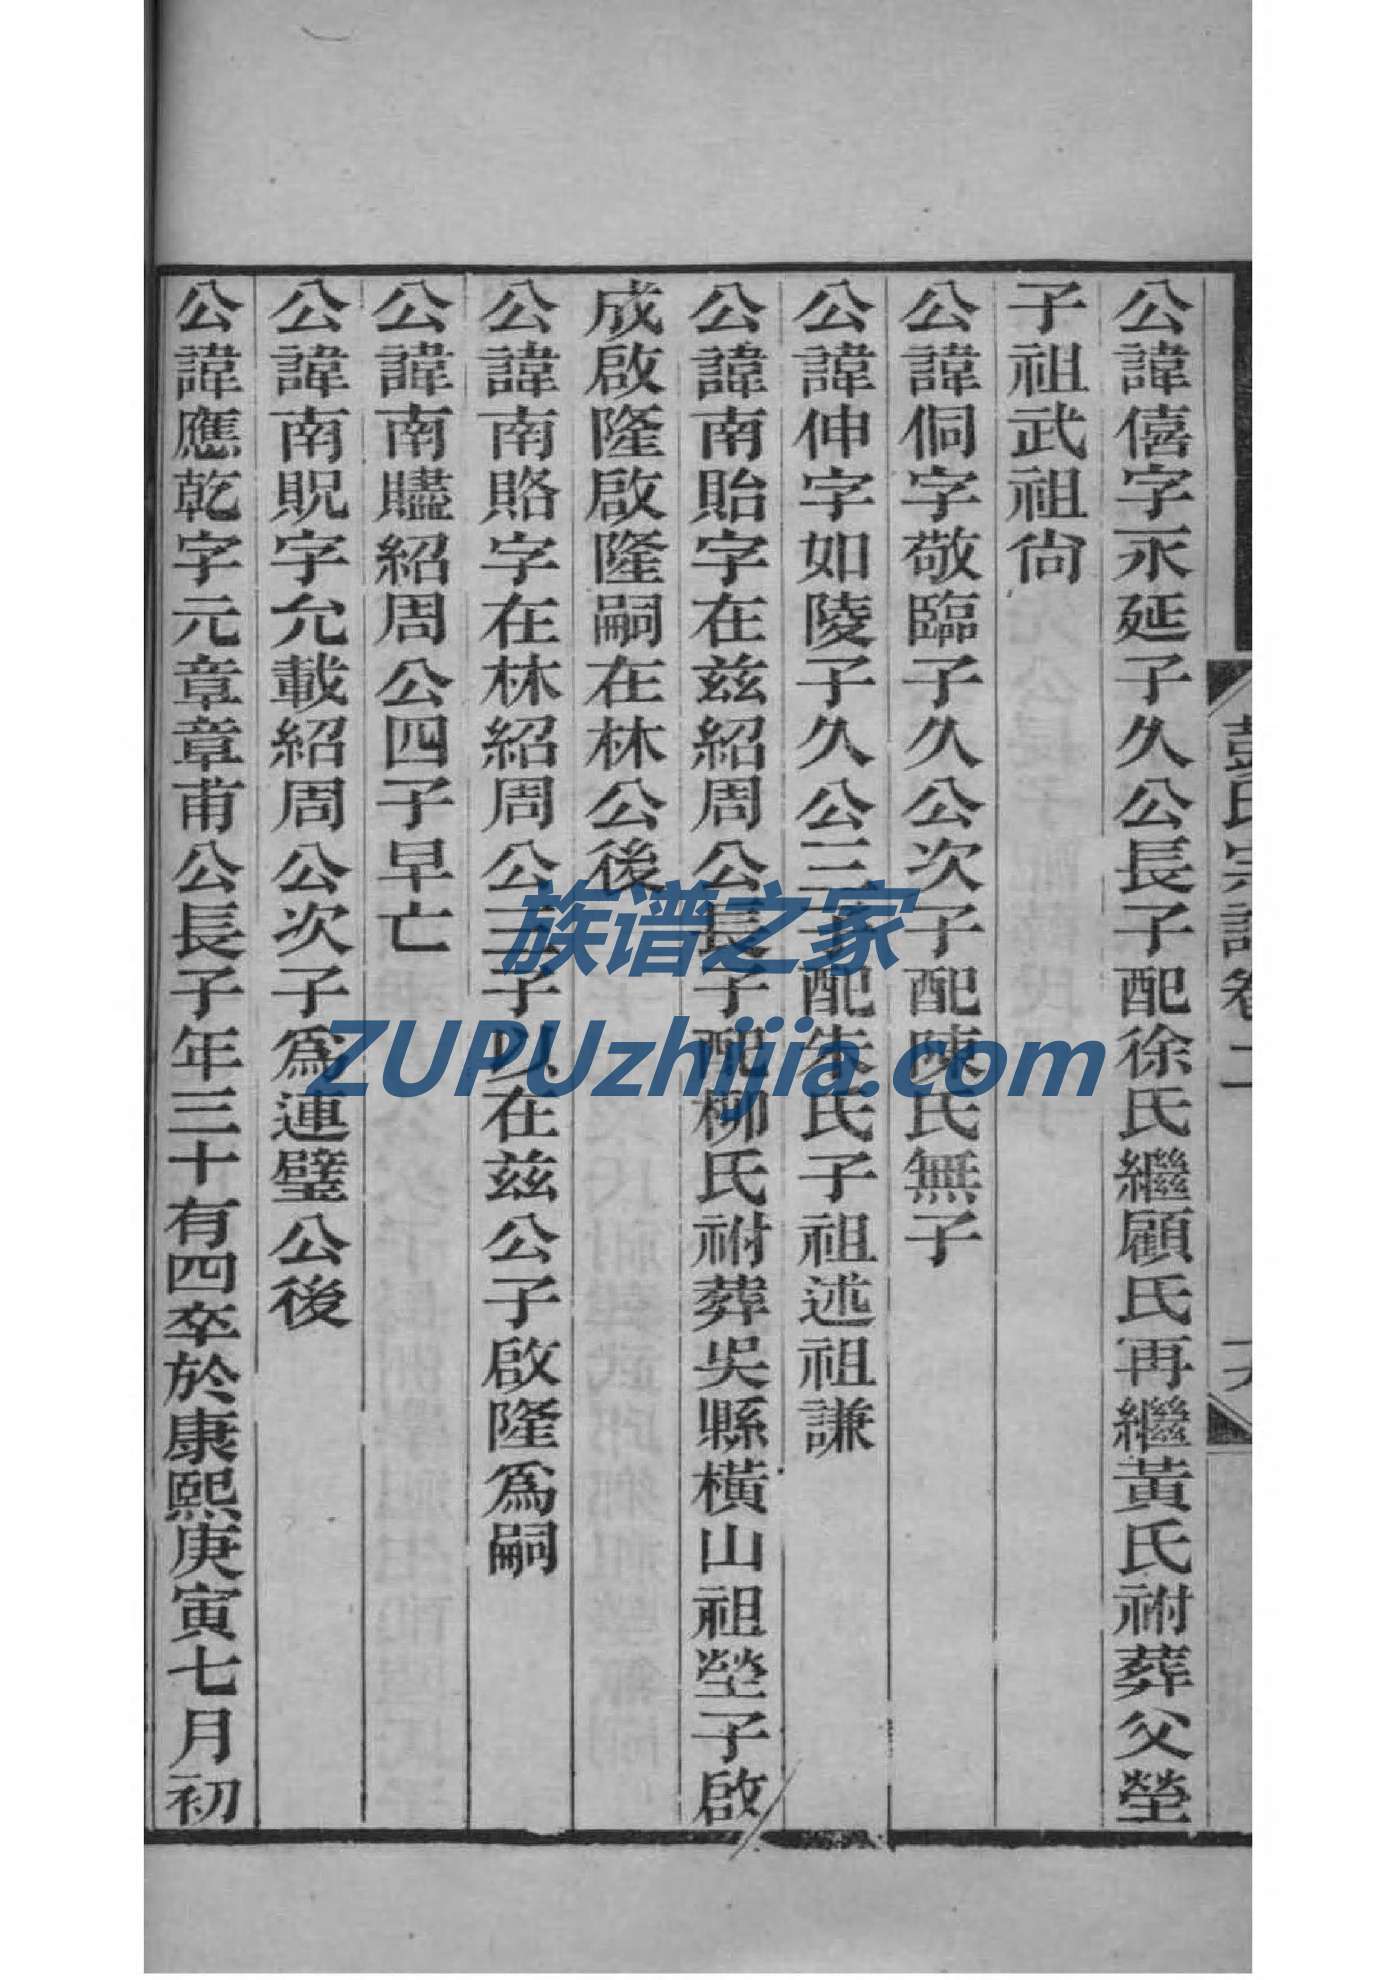 公諱僖字永延子久公長子配徐氏繼顧氏再繼黃氏祔葬父塋
子祖武祖尙
公諱侗字敬臨子久公次子配陳氏無子
公諱伸字如陵子久公三子配朱氏子祖述祖謙
公諱南貽字在兹紹周公長子配柳氏祔葬吳縣橫山祖塋子啟
成啟隆啟隆嗣在林公後
公諱南賂字在林紹周公三子以在兹公子啟隆爲嗣
公諱南贐紹周公四子早亡
公諱南貺字允載紹周公次子爲連璧公後
公諱應乾字元章章甫公長子年三十有四卒於康熙庚寅七月初
彭氏宗譜卷二
族谱之家
ZUPUzhijia.com